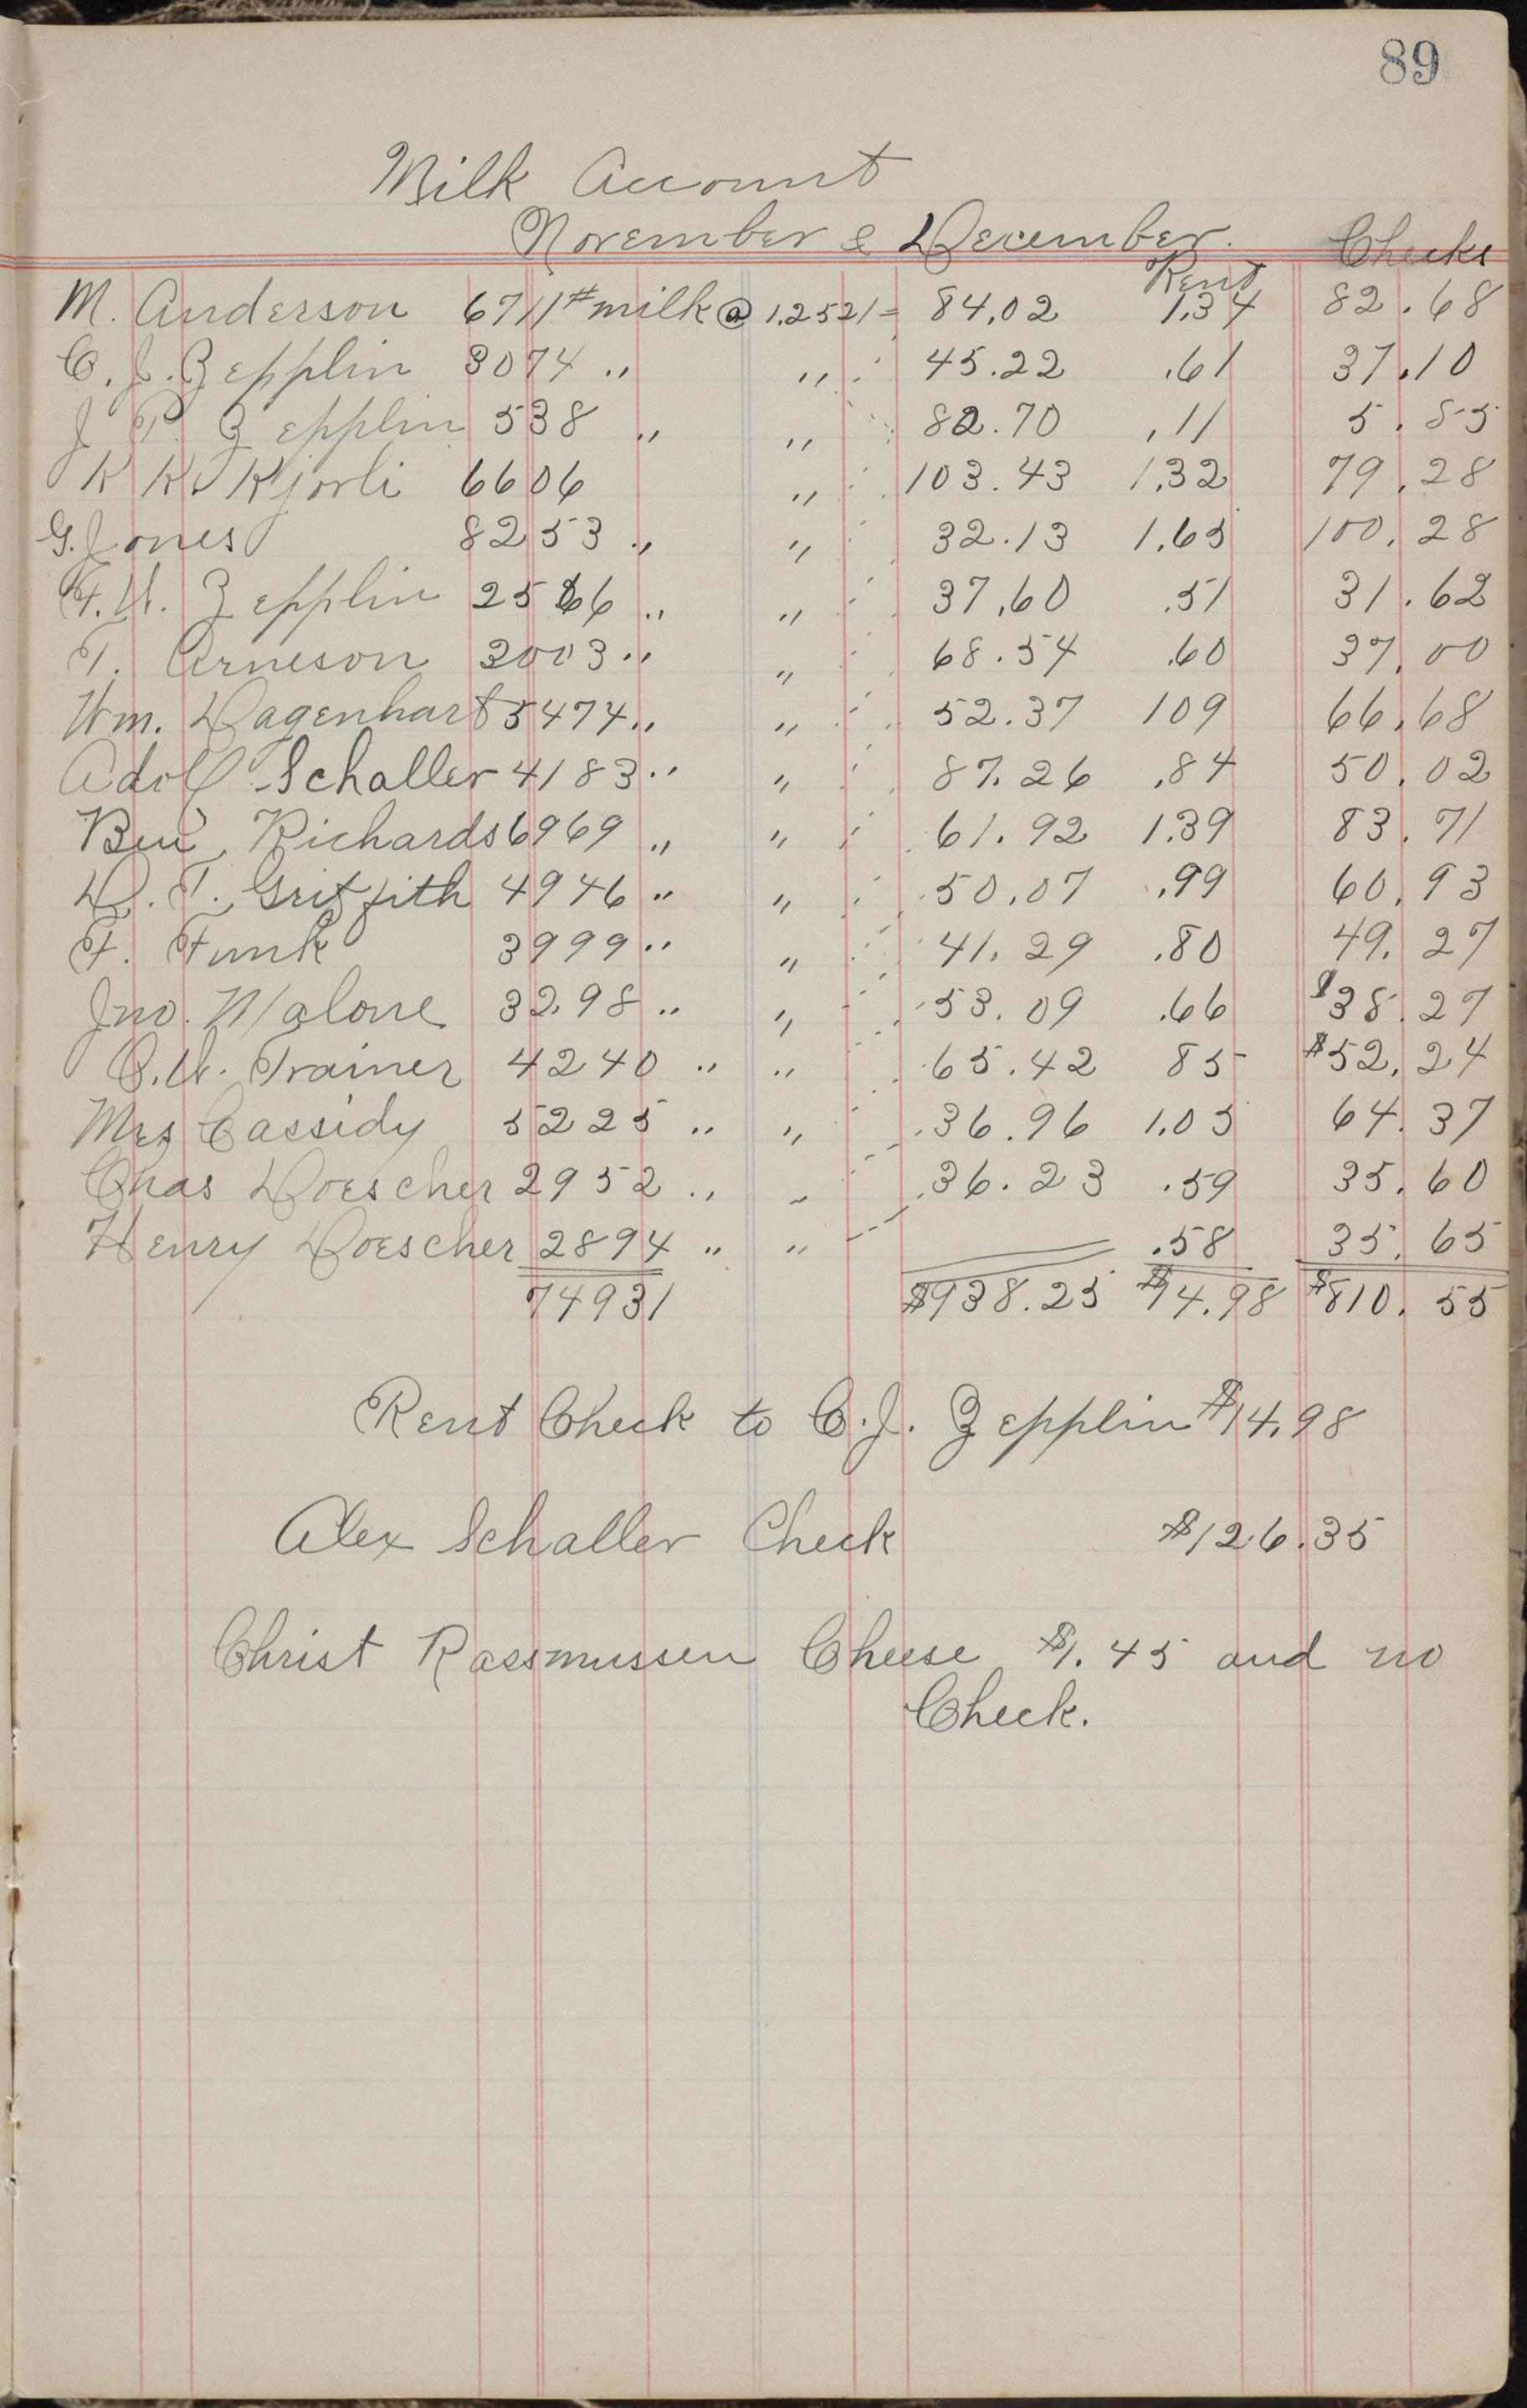 89
Milk Account
November & December.
Rent Checks
M. Anderson 6711# milk @ 1.2521 = 84.02 1.34 82.68
C. J. Zepplin 3074 " " 45.22 .61 37.10
J P. Zepplin 538 " " 82.70 .11 5.85
K K. Kjorli 6606 " 103.43 1.32 79.28
G. Jones 8253 " " 32.13 1.65 100.28
F. W. Zepplin 2566 " " 37.60 .51 31.62
T. Arneson 3003 " " 68.54 .60 37.00
Wm. Dagenhart 5474 " " 52.37 109 66.68
Adolf Schaller 4183 " " 87.26 .84 50.02
Ben Richards 6969 " " 61.92 1.39 83.71
D. T. Griffith 4946 " " 50.07 .99 60.93
F. Funk 3999 " " 41.29 .80 49.27
Jno. Malone 3298 " " 53.09 .66 $38.27
O. W. Trainer 4240 " " 65.42 85 $52.24
Mrs Cassidy 5225 " " 36.96 1.05 64.37
Chas Doescher 2952 " " 36.23 .59 35.60
Henry Doescher 2894 " " .58 35.65
74931 $938.25 $14.98 $810.55
Rent Check to C. J. Zepplin $14.98
Alex Schaller Check $126.35
Christ Rassmussen Cheese $1.45 and no
Check.